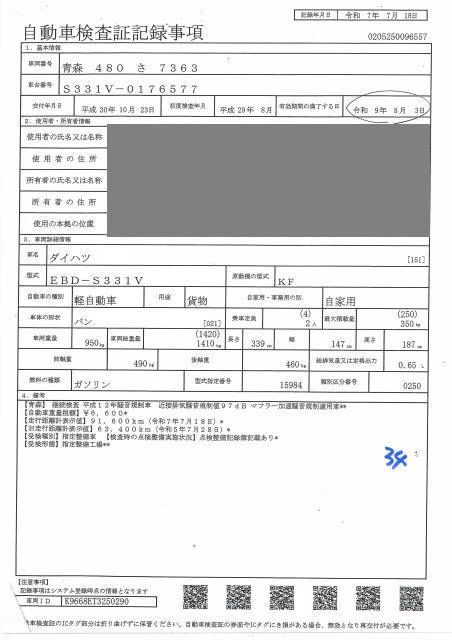 記録年月日 令和 7年 7月 18日
自動車検査証記録事項
0205250096557
1. 基本情報
車両番号 青森 480 さ 7363
車台番号 S331V-0176577
交付年月日 平成 30年 10月 23日 初度検査年月 平成 29年 8月 有効期間の満了する日 令和 9年 8月 3日
2. 使用者・所有者情報
使用者の氏名又は名称
使用者の住所
所有者の氏名又は名称
所有者の住所
使用の本拠の位置
3. 車両詳細情報
車名 ダイハツ [151]
型式 EBD-S331V 原動機の型式 KF
自動車の種別 軽自動車 用途 貨物 自家用・事業用の別 自家用
車体の形状 バン [021] 乗車定員 (4) 2人 最大積載量 (250) 350kg
車両重量 950kg 車両総重量 (1420) 1410kg 長さ 339cm 幅 147cm 高さ 187cm
前軸重 490kg 後軸重 460kg 総排気量又は定格出力 0.65 L
燃料の種類 ガソリン 型式指定番号 15984 類別区分番号 0250
4. 備考
【青森】 継続検査 平成12年騒音規制車 近接排気騒音規制値97dB マフラー加速騒音規制適用車**
【自動車重量税額】¥6,600*
【走行距離計表示値】91,600km(令和7年7月18日)*
【旧走行距離計表示値】63,400km(令和5年7月28日)*
【受検種別】指定整備車 【検査時の点検整備実施状況】点検整備記録簿記載あり*
【受検形態】指定整備工場**
34
【注意事項】
記録事項はシステム登録時点の情報となります
車両ID K9668ET3250290
車検査証のICタグ部分は折り曲げずに保管ください。自動車検査証の券面やICタグにき損がある場合、無効となり再交付が必要です。